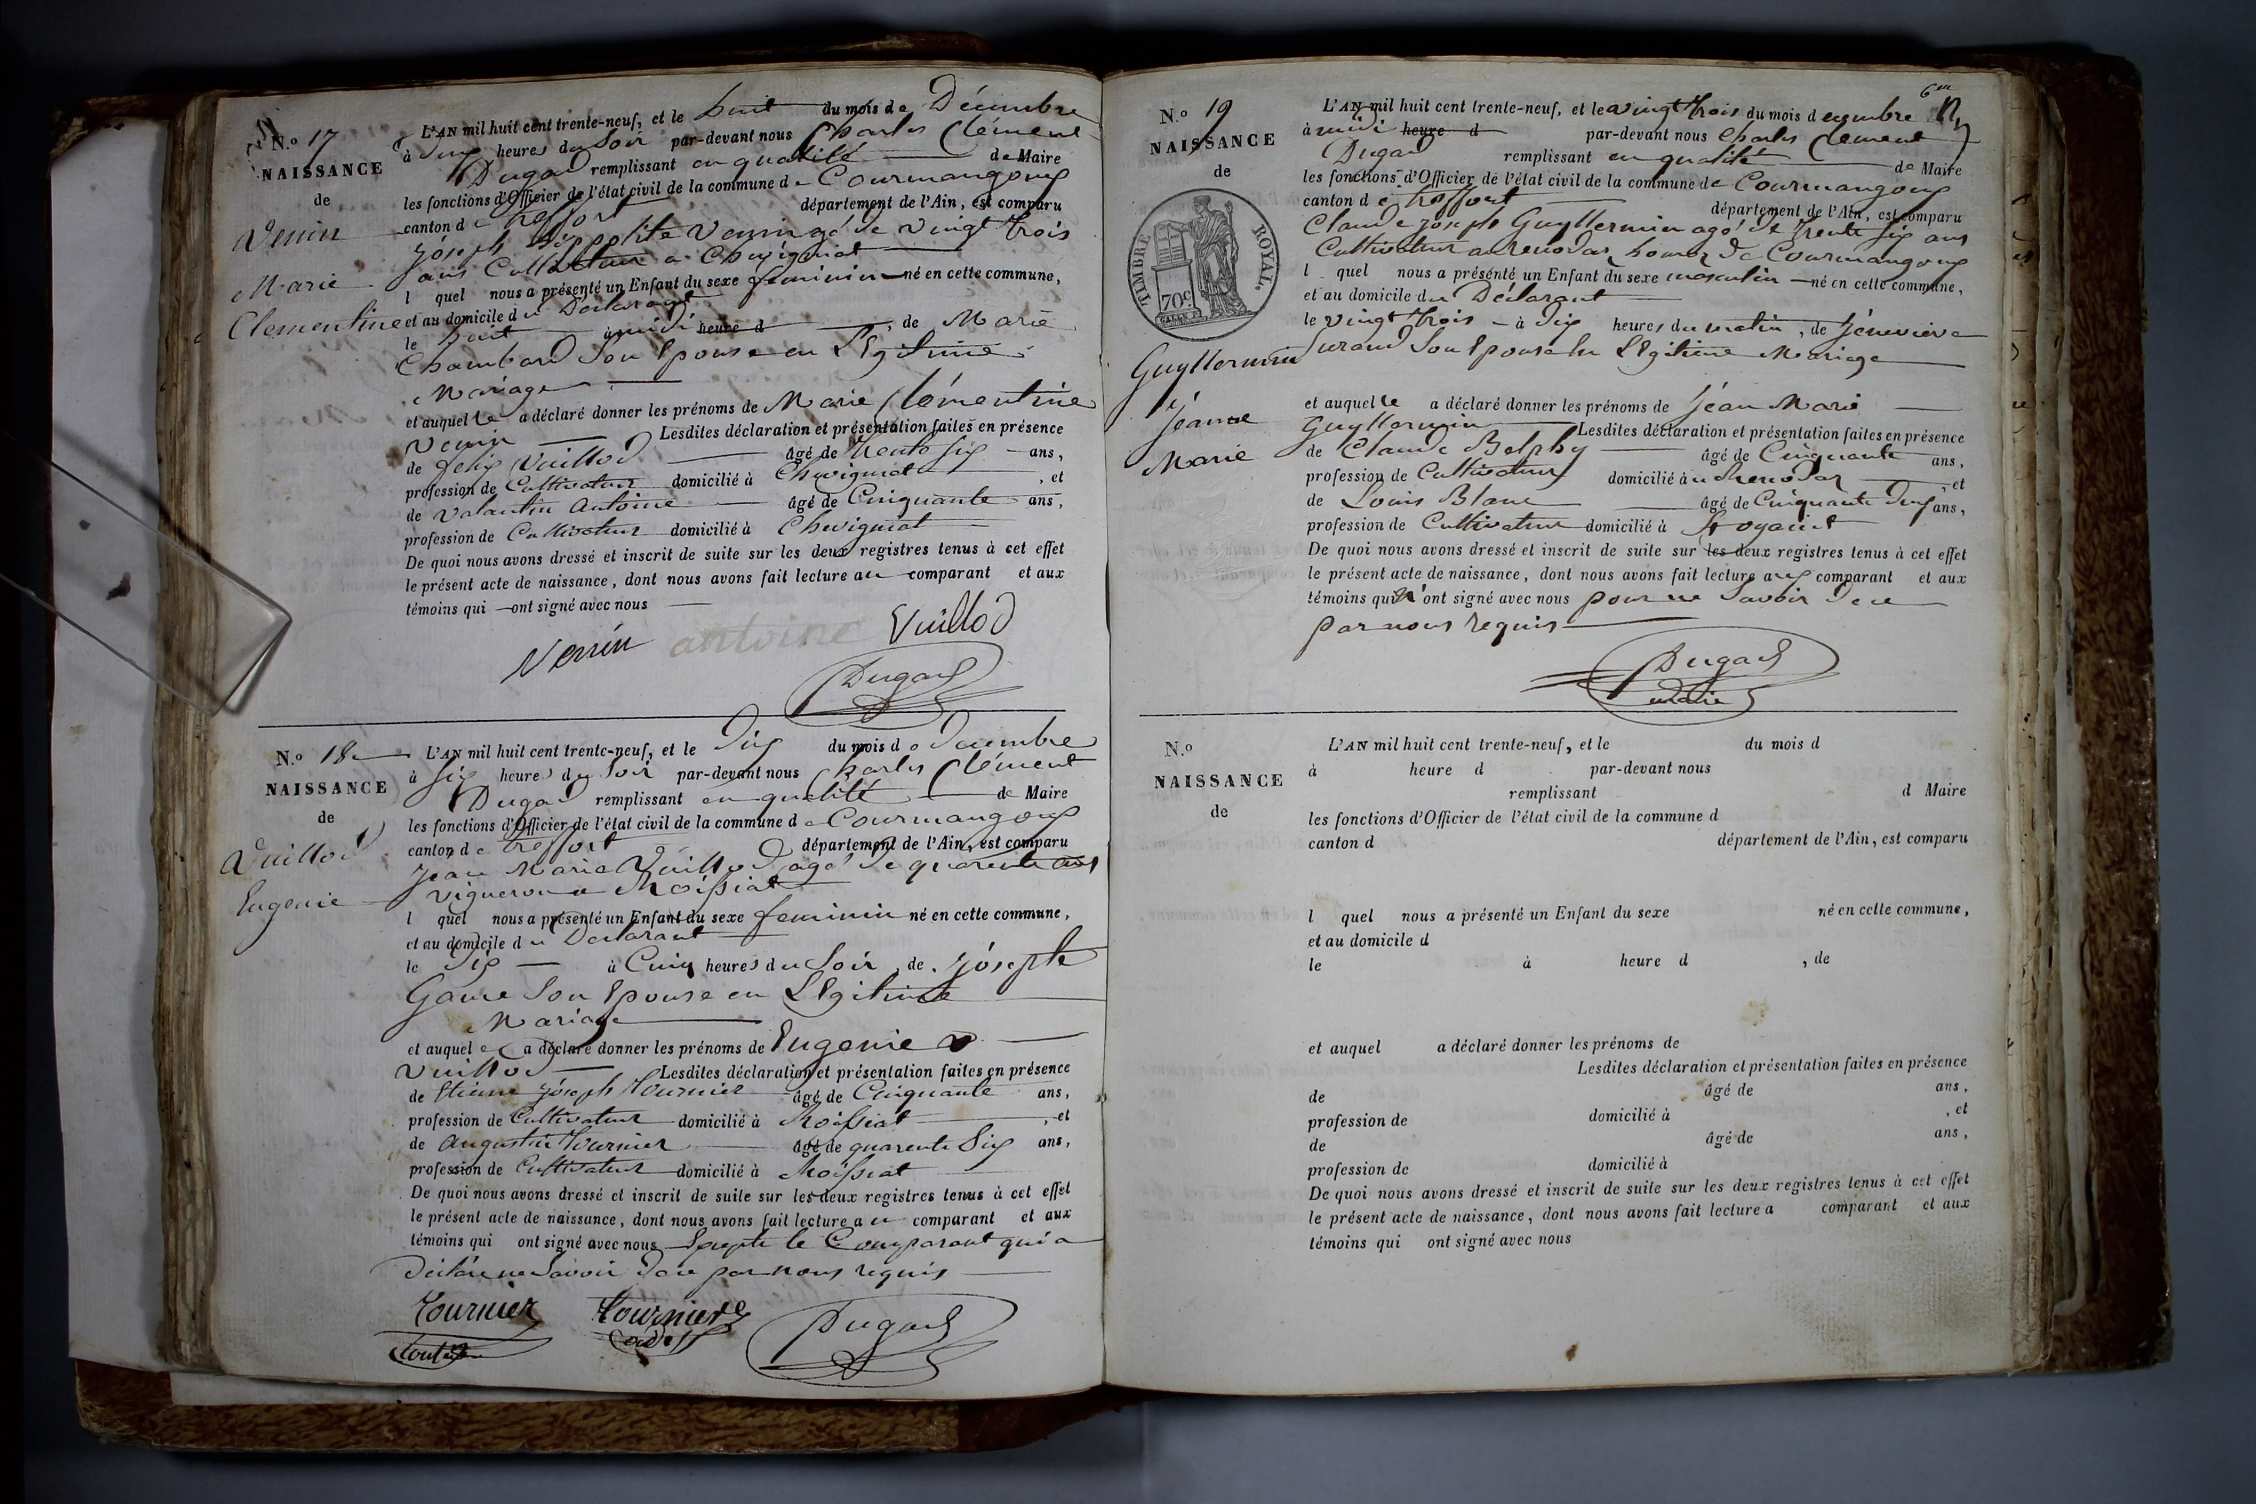 N.o 17
NAISSANCE
de
Venin
Marie
Clementine
L'AN mil huit cent trente-neuf, et le huit du mois de Décembre
à heures du Soir par-devant nous Charles Clément
Dugad remplissant en qualité de Maire
les fonctions d'Officier de l'état civil de la commune de Courmangoux
canton de treffort département de l'Ain, est comparu
Joseph hippolite Venin agé de vingt trois
ans Cultivateur a Chevigniat
l quel nous a présenté un Enfant du sexe feminin né en cette commune,
et au domicile du Déclarant
le huit à midi heure d , de Marie
Chambard Son Epouse en LEgitime
Mariage
et auquel le a déclaré donner les prénoms de Marie Clémentine
Venin Lesdites déclaration et présentation faites en présence
de felix Vuillod âgé de trente Six ans,
profession de Cultivateur domicilié à Chevigniat , et
de Valantin Antoine âgé de Cinquante ans,
profession de Cultivateur domicilié à Chevigniat
De quoi nous avons dressé et inscrit de suite sur les deux registres tenus à cet effet
le présent acte de naissance, dont nous avons fait lecture au comparant et aux
témoins qui ont signé avec nous
Venin antoine Vuillod
Dugad
N.o 18
NAISSANCE
de
Vuillod
Eugenie
L'AN mil huit cent trente-neuf, et le Dix du mois de Decembre
à Six heures du Soir par-devant nous Charles Clément
Dugad remplissant en qualité de Maire
les fonctions d'Officier de l'état civil de la commune de Courmangoux
canton de treffort département de l'Ain, est comparu
Jean Marie Vuillod agé de quarente ans
vigneron a Roissiat
l quel nous a présenté un Enfant du sexe feminin né en cette commune,
et au domicile du Declarant
le Dix à Cinq heures du Soir , de Joseph
Son Epouse en LEgitime
Mariage
et auquel e a déclaré donner les prénoms de Eugenie
Vuillod Lesdites déclaration et présentation faites en présence
de Etienne Joseph Tournier âgé de Cinquante ans,
profession de Cultivateur domicilié à Roissiat , et
de Augustin Tournier âgé de quarente Six ans,
profession de Cultivateur domicilié à Roissiat
De quoi nous avons dressé et inscrit de suite sur les deux registres tenus à cet effet
le présent acte de naissance, dont nous avons fait lecture au comparant et aux
témoins qui ont signé avec nous Excepté le Comparant qui a
Déclaré ne Savoir de ce par nous requis
Tournier Tournier Dugad
6me
N.o 19
NAISSANCE
de
TIMBRE ROYAL.
70c
Guyllermin
Jean
Marie
L'AN mil huit cent trente-neuf, et le vingt trois du mois d ecembre
à midi heure d par-devant nous Charles Clément
Dugad remplissant en qualité de Maire
les fonctions d'Officier de l'état civil de la commune de Courmangoux
canton de treffort département de l'Ain, est comparu
Claude Joseph Guyllermin agé de trente Six ans
Cultivateur hameau De Courmangoux
l quel nous a présenté un Enfant du sexe masculin né en cette commune,
et au domicile du Déclarant
le vingt trois à Dix heures du matin , de Jéneviève
Son Epouse En LEgitime Mariage
et auquel le a déclaré donner les prénoms de Jean Marie
Guyllermin Lesdites déclaration et présentation faites en présence
de Claude âgé de Cinquante ans,
profession de Cultivateur domicilié à , et
de Louis Blanc âgé de Cinquante Deux ans,
profession de Cultivateur domicilié à
De quoi nous avons dressé et inscrit de suite sur les deux registres tenus à cet effet
le présent acte de naissance, dont nous avons fait lecture aux comparant et aux
témoins qui n'ont signé avec nous pour ne Savoir De ce
par nous requis
Dugad
maire
N.o
NAISSANCE
de
L'AN mil huit cent trente-neuf, et le du mois d
à heure d par-devant nous
remplissant d Maire
les fonctions d'Officier de l'état civil de la commune d
canton d département de l'Ain, est comparu
l quel nous a présenté un Enfant du sexe né en cette commune,
et au domicile d
le à heure d , de
et auquel a déclaré donner les prénoms de
Lesdites déclaration et présentation faites en présence
de âgé de ans,
profession de domicilié à , et
de âgé de ans,
profession de domicilié à
De quoi nous avons dressé et inscrit de suite sur les deux registres tenus à cet effet
le présent acte de naissance, dont nous avons fait lecture a comparant et aux
témoins qui ont signé avec nous